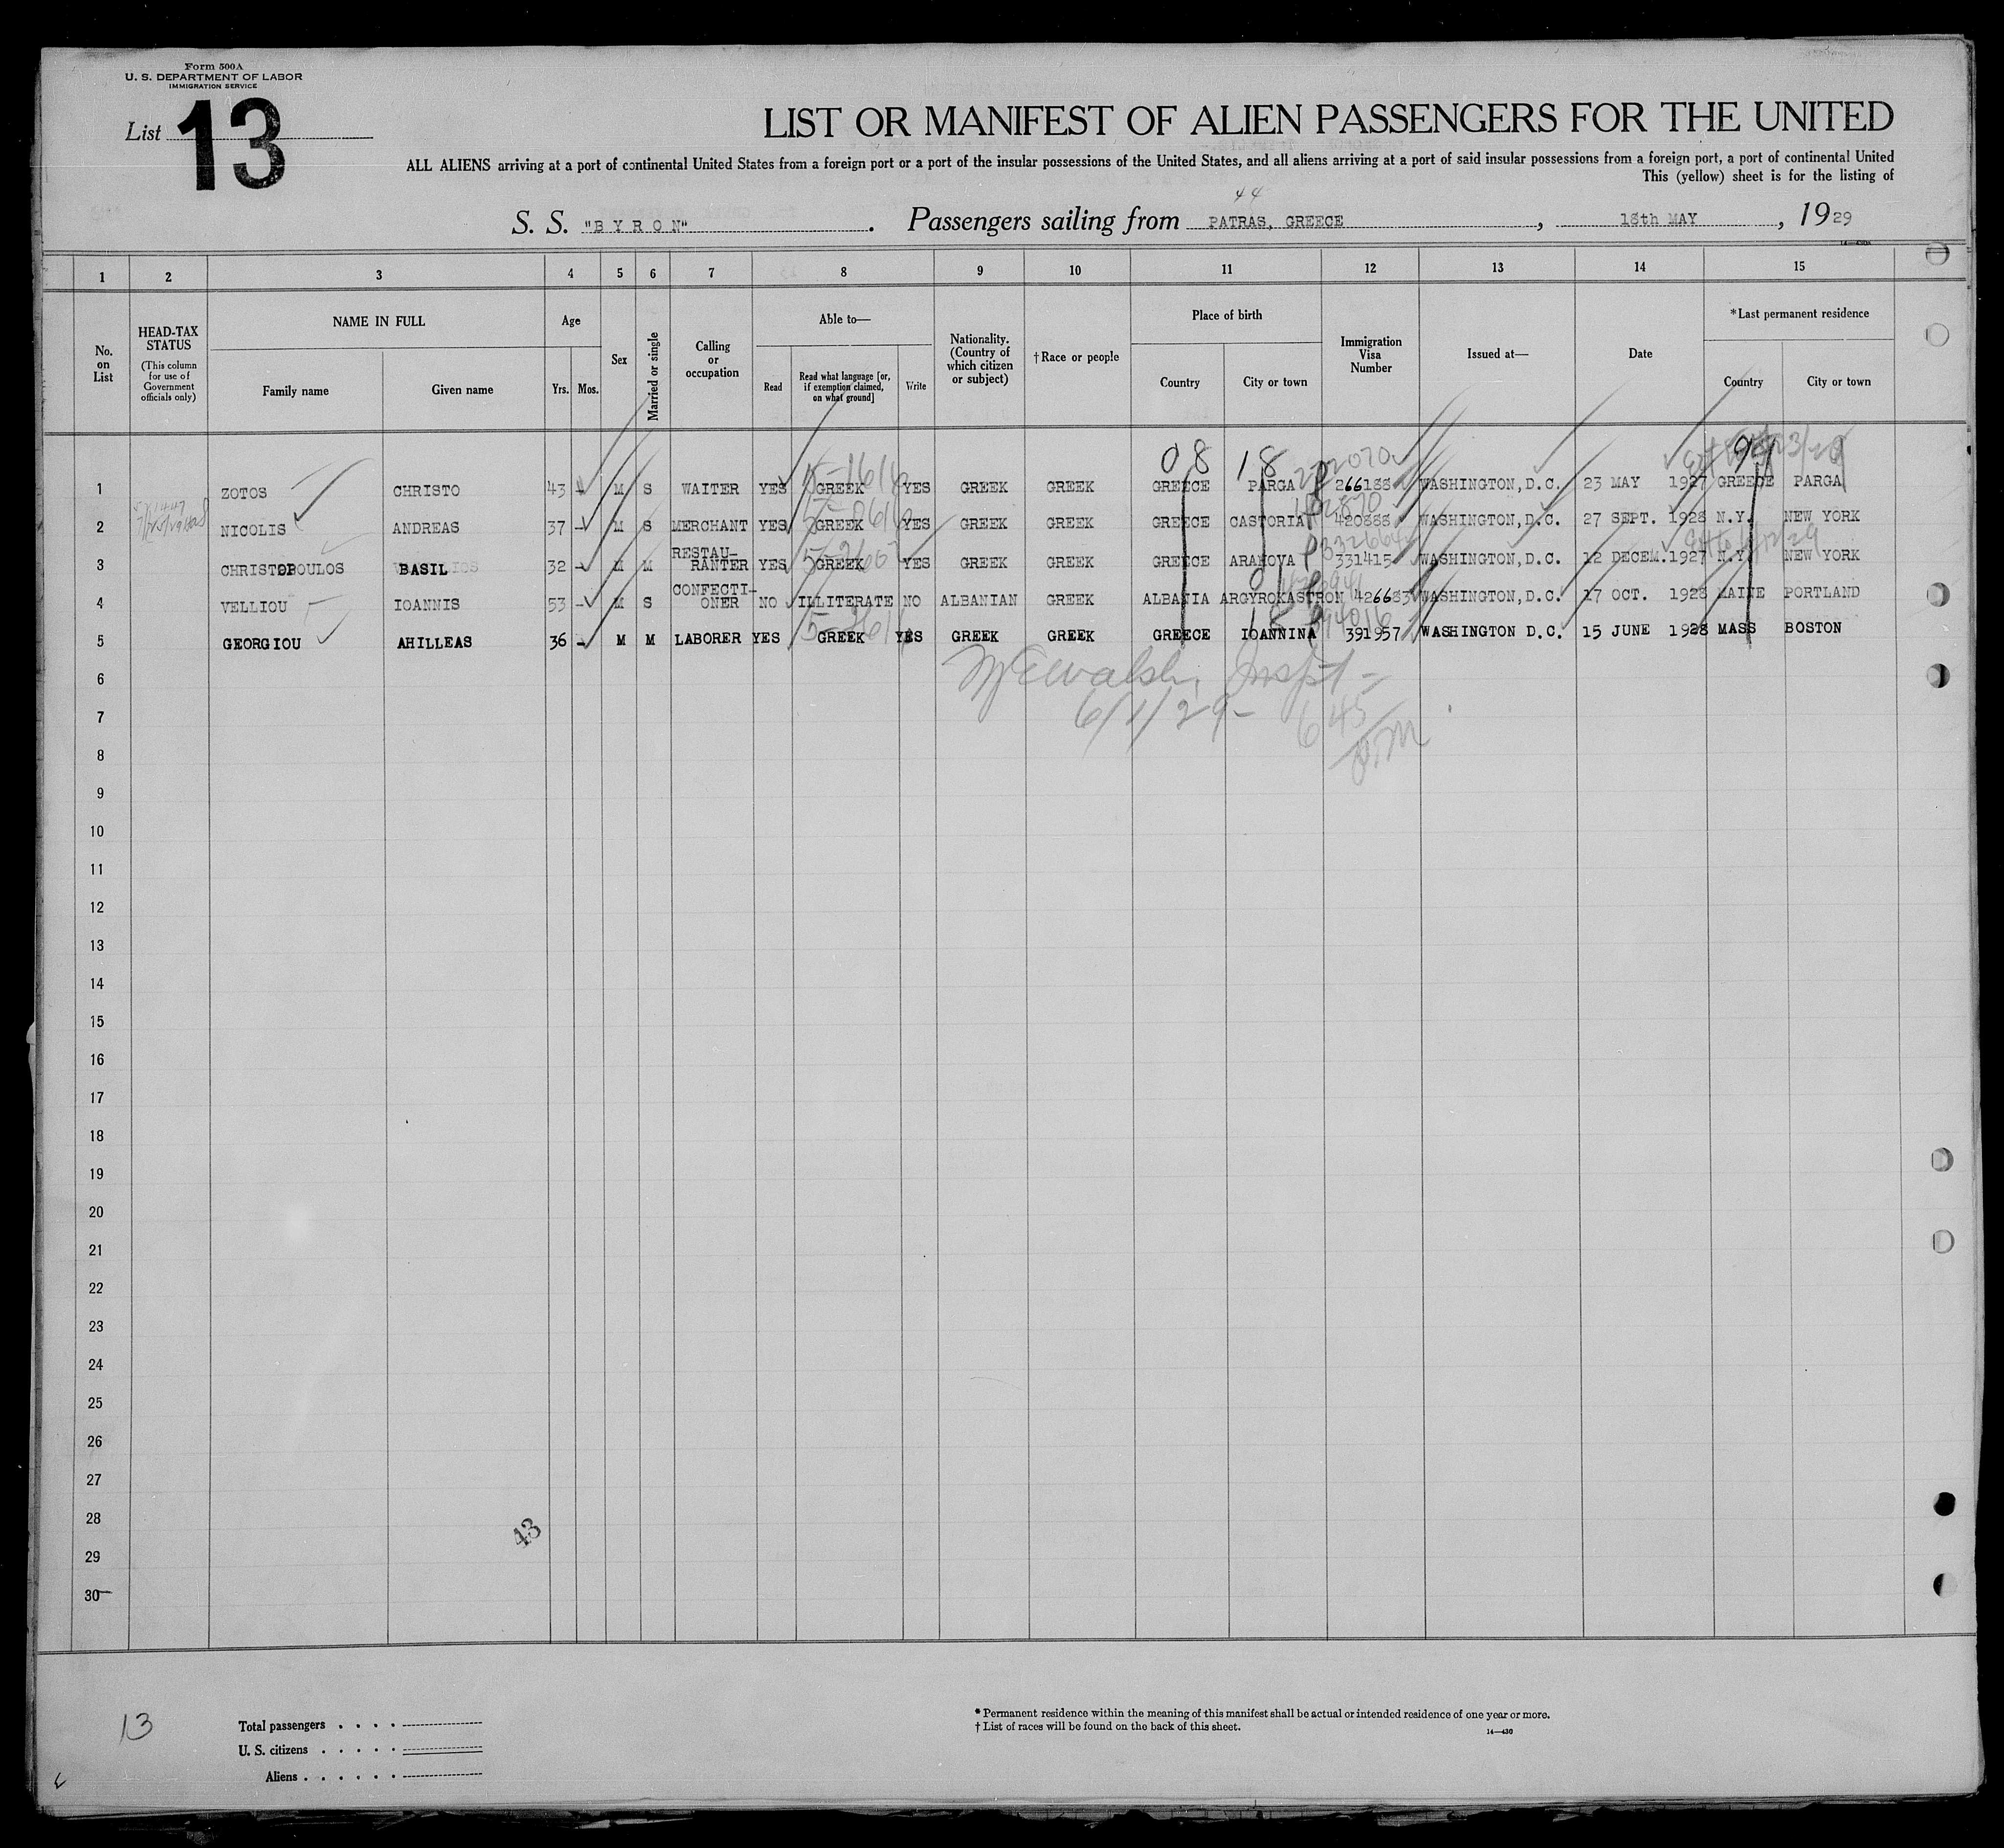 Form 500A
U. S. DEPARTMENT OF LABOR
IMMIGRATION SERVICE
List 13
LIST OR MANIFEST OF ALIEN PASSENGERS FOR THE UNITED
ALL ALIENS arriving at a port of continental United States from a foreign port or a port of the insular possessions of the United States, and all aliens arriving at a port of said insular possessions from a foreign port, a port of continental United
This (yellow) sheet is for the listing of
44
S. S. "BYRON". Passengers sailing from PATRAS, GREECE, 18th MAY, 1929
1 2 3 4 5 6 7 8 9 10 11 12 13 14 15
No. on List
HEAD-TAX STATUS
(This column for use of Government officials only)
NAME IN FULL
Family name Given name
Age
Yrs. Mos.
Sex
Married or single
Calling or occupation
Able to—
Read Read what language [or, if exemption claimed, on what ground] Write
Nationality. (Country of which citizen or subject)
†Race or people
Place of birth
Country City or town
Immigration Visa Number
Issued at—
Date
*Last permanent residence
Country City or town
08 18 99
1 ZOTOS CHRISTO 43 M S WAITER YES GREEK YES GREEK GREEK GREECE PARGA 266188 WASHINGTON, D.C. 23 MAY 1927 GREECE PARGA
2 NICOLIS ANDREAS 37 - M S MERCHANT YES GREEK YES GREEK GREEK GREECE CASTORIA 420888 WASHINGTON, D.C. 27 SEPT. 1928 N.Y. NEW YORK
3 CHRISTOPOULOS BASIL 32 - M M RESTAU-RANTER YES GREEK YES GREEK GREEK GREECE ARAHOVA 331415 WASHINGTON, D.C. 12 DECEM. 1927 N.Y. NEW YORK
4 VELLIOU IOANNIS 53 - M S CONFECTI-ONER NO ILLITERATE NO ALBANIAN GREEK ALBANIA ARGYROKASTRON 426683 WASHINGTON, D.C. 17 OCT. 1928 MAINE PORTLAND
5 GEORGIOU AHILLEAS 36 - M M LABORER YES GREEK YES GREEK GREEK GREECE IOANNINA 391957 WASHINGTON D.C. 15 JUNE 1928 MASS BOSTON
6
7 6/1/29- 645
8
9
10
11
12
13
14
15
16
17
18
19
20
21
22
23
24
25
26
27
28
43
29
30
13
Total passengers
U. S. citizens
Aliens
* Permanent residence within the meaning of this manifest shall be actual or intended residence of one year or more.
† List of races will be found on the back of this sheet.
14—430